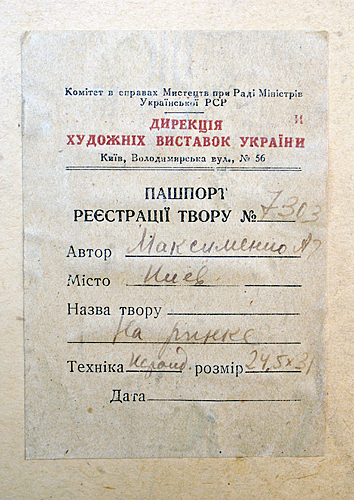 Комітет в справах Мистецтв при Раді Міністрів
Української РСР
ДИРЕКЦІЯ
ХУДОЖНІХ ВИСТАВОК УКРАЇНИ
Київ, Володимирська вул., № 56
ПАШПОРТ
РЕЄСТРАЦІЇ ТВОРУ № 7303
Автор Максименко А
Місто Киев
Назва твору
На рынке
Техніка каранд. розмір 24,5х31
Дата